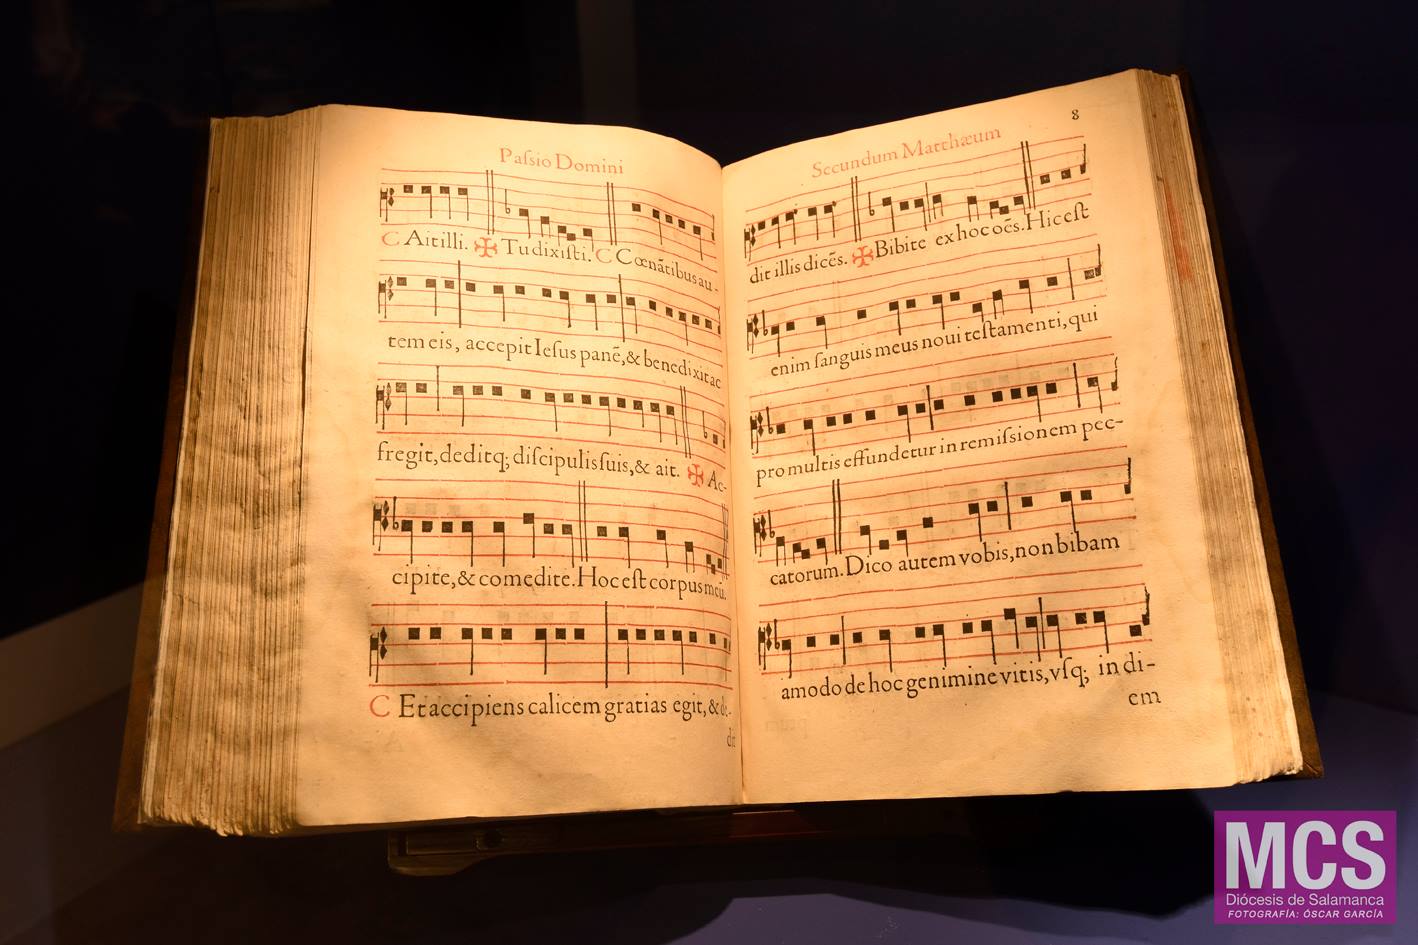 Paſsio Domini
C Ait illi. ✠ Tu dixiſti. C Cœnãtibus au-
tem eis, accepit Ieſus panẽ, & benedixit ac
fregit, deditq; diſcipulis ſuis, & ait. ✠ Ac-
cipite, & comedite. Hoc eſt corpus meu.
C Et accipiens calicem gratias egit, & de-
dit
8
Secundum Matthæum
dit illis dicẽs. ✠ Bibite ex hoc oẽs. Hic eſt
enim ſanguis meus noui teſtamenti, qui
pro multis effundetur in remiſsionem pec-
catorum. Dico autem vobis, non bibam
amodo de hoc genimine vitis, vſq; in di-
em
MCS
Diócesis de Salamanca
FOTOGRAFÍA: ÓSCAR GARCÍA